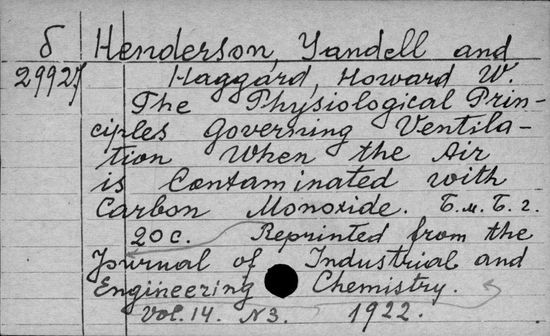 б Henderson, Yandell and
29927 Haggard, Howard W.
The Physiological Prin-
ciples Governing Ventila-
tion When the Air
is Contaminated with
Carbon Monoxide. Б.м.Б.г.
20 c. Reprinted from the
Journal of Industrial and
Engineering Chemistry.
Vol. 14. N3. 1922.